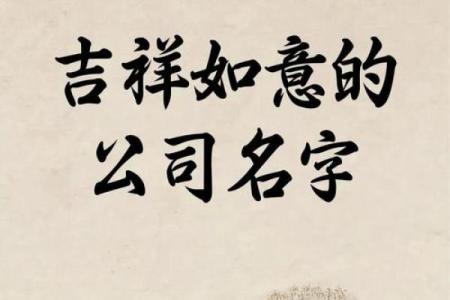 吉祥如意的
公司名字